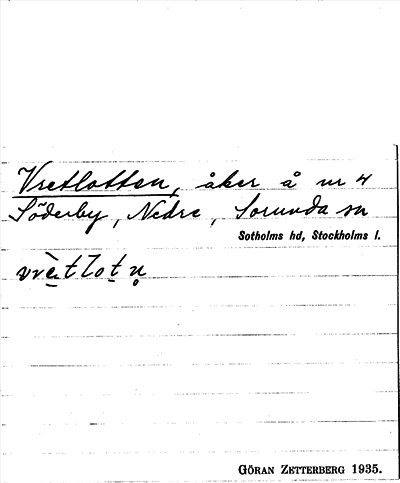 Vretlotten, åker å nr 4
Söderby, Nedre, Sorunda sn
Sotholms hd, Stockholms l.
vrètlotn̥
GÖRAN ZETTERBERG 1935.